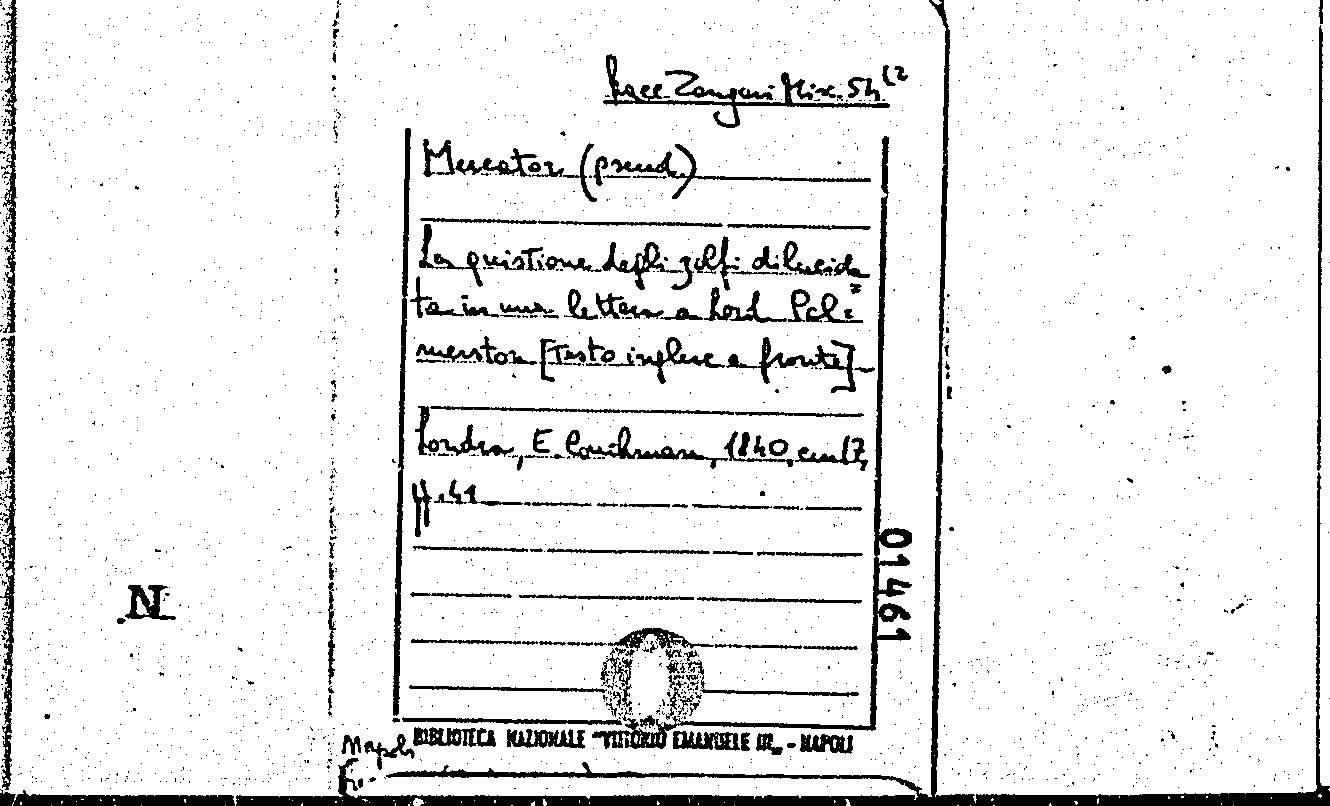 Race Zangari Misc. 54 (2
Mercator (pseud.)
La quistione degli zolfi dilucida
ta in una lettera a Lord Pal=
merston [Testo inglese a fronte]
Londra, E. 1840, cm 17,
pp. 41
01461
N
BIBLIOTECA NAZIONALE "VITTORIO EMANUELE III" - NAPOLI
Napoli